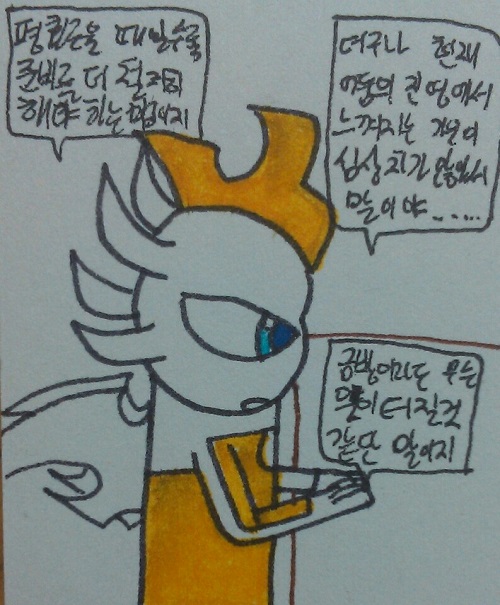 평화로울 때일수록
준비를 더 철저히
해야 하는 법이지
더구나 현재
어둠의 진영에서
느껴지는 기운이
심상치가 않아서
말이야......
금방이라도 무슨
일이 터질것
같단 말이지